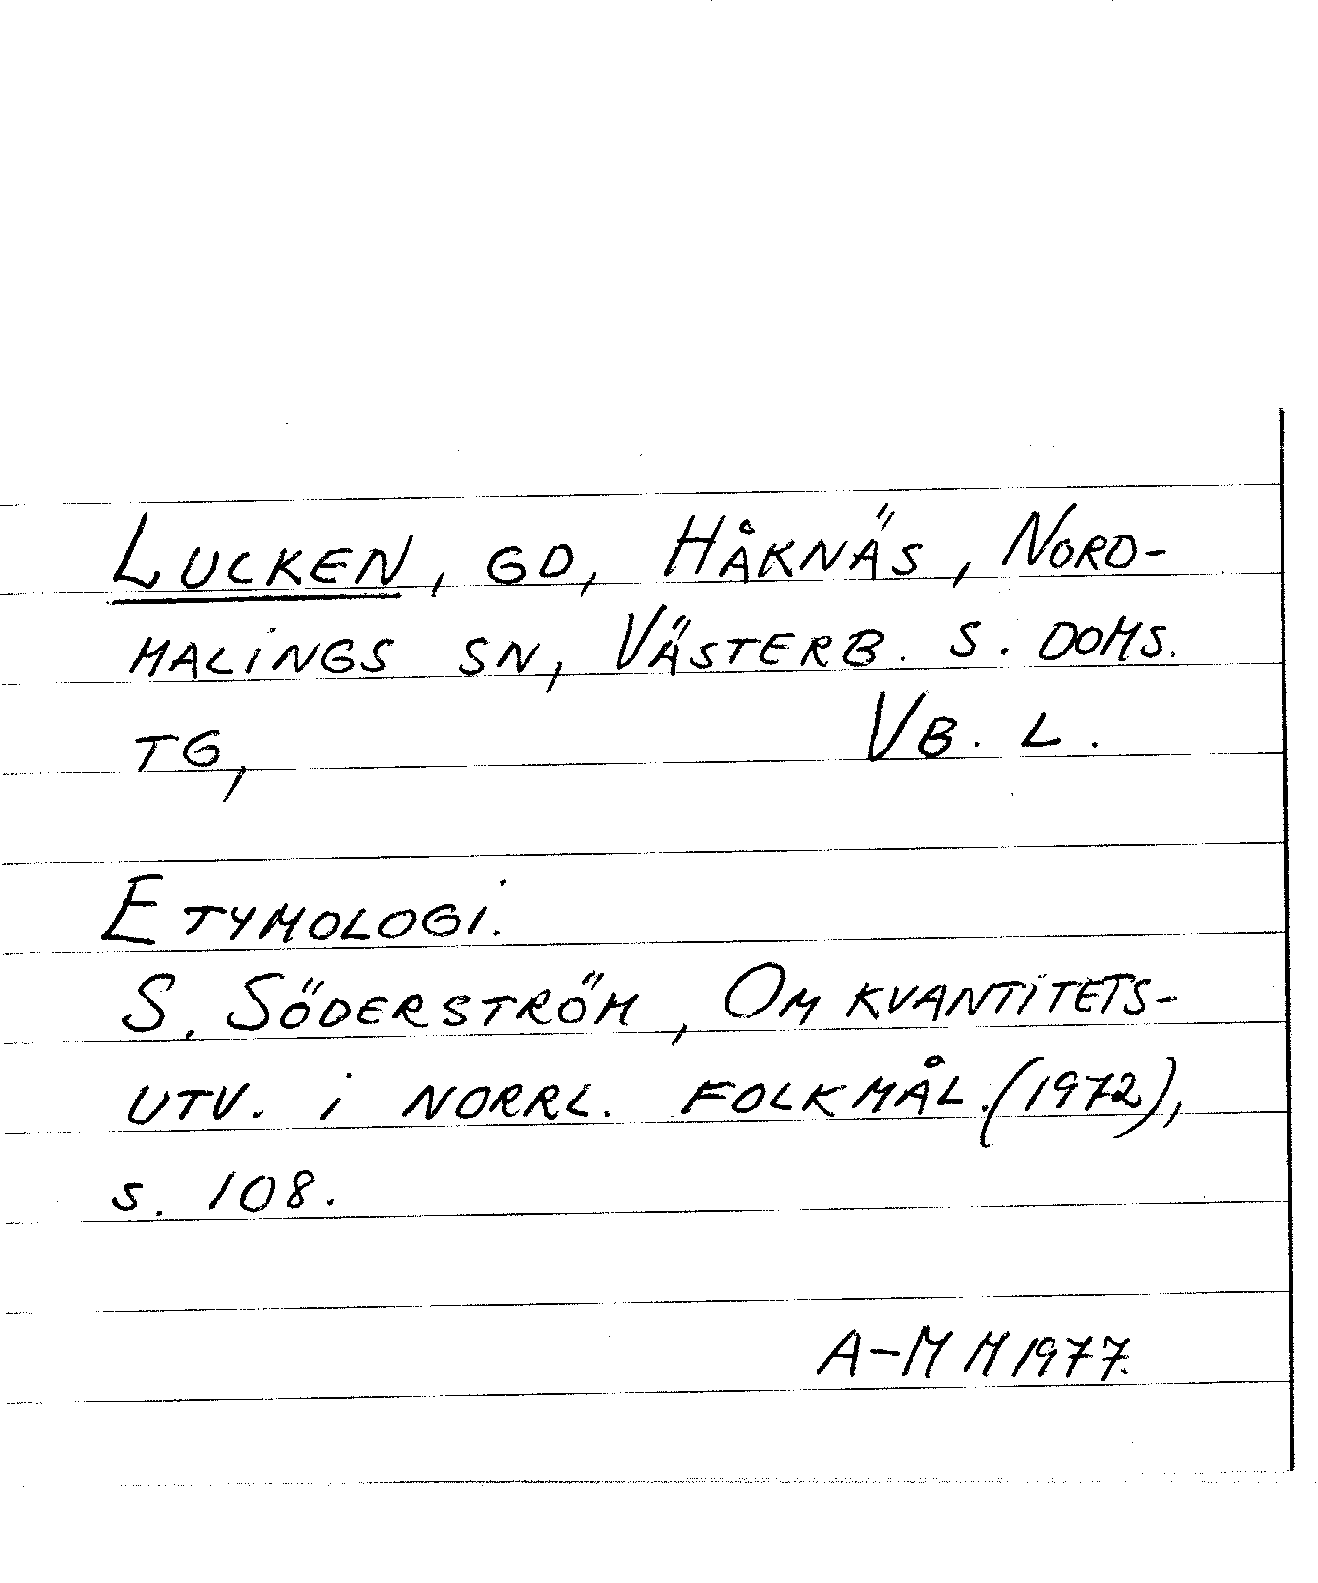 LUCKEN, GD, HÅKNÄS, NORD-
MALINGS SN, VÄSTERB. S. DOMS.
TG, VB. L.
ETYMOLOGI.
S. SÖDERSTRÖM, OM KVANTITETS-
UTV. i NORRL. FOLKMÅL. (1972),
S. 108.
A-M M 1977.